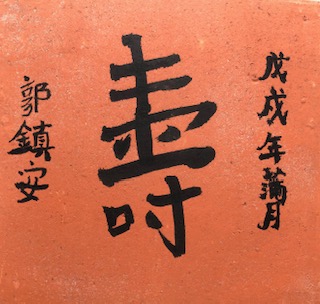 戊戌年蒲月
壽
郭鎮安